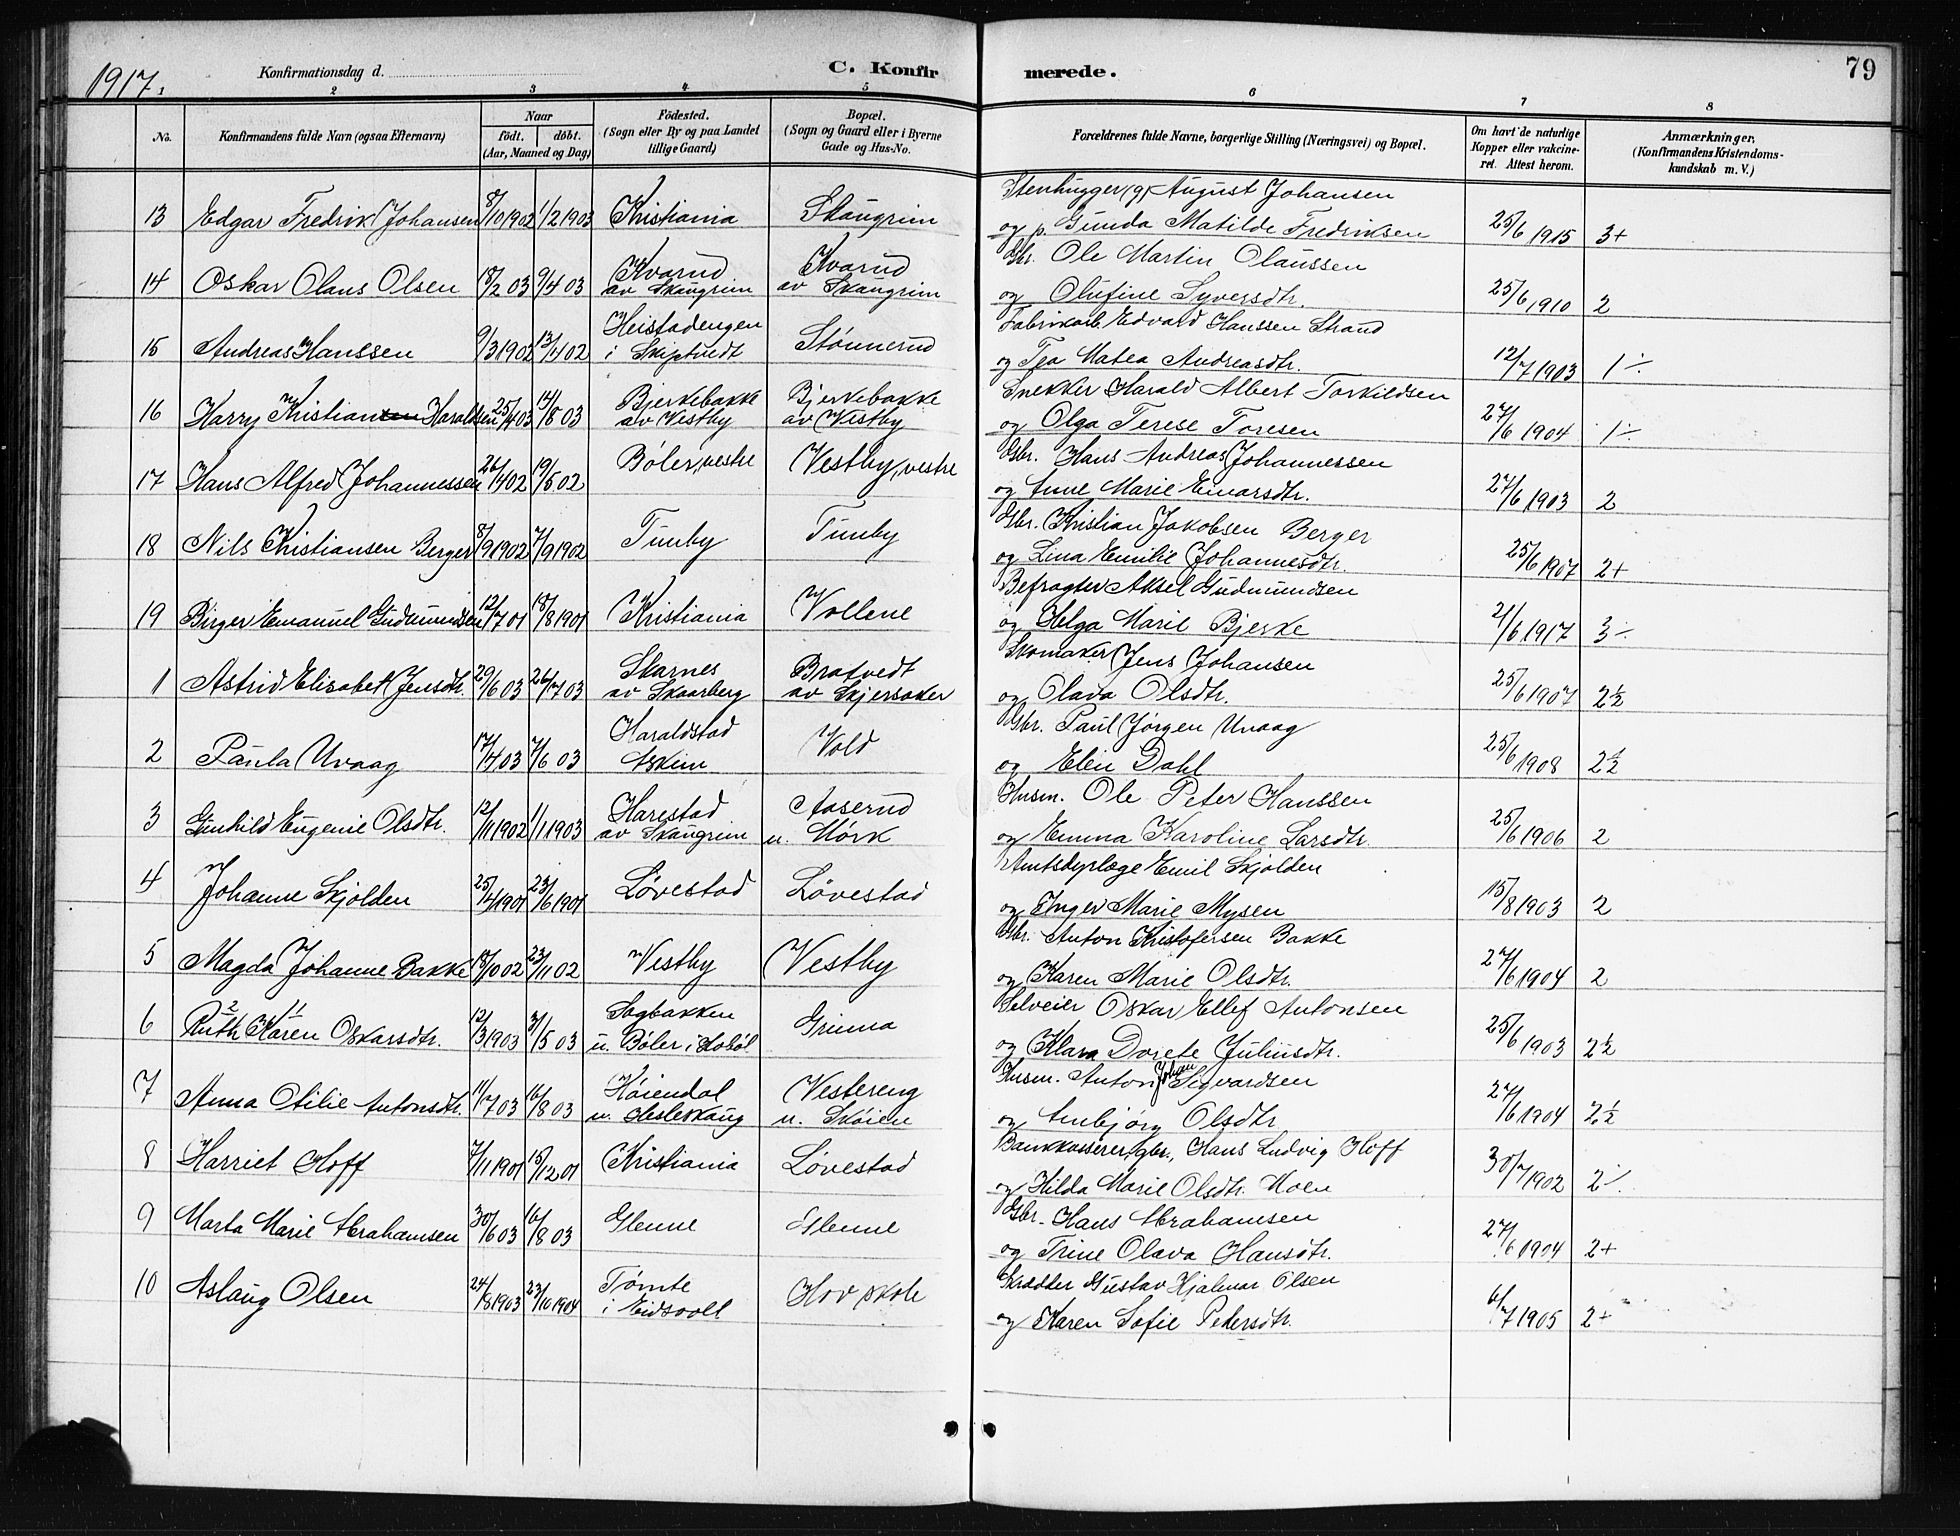 1917.
Konfirmationsdag d.
C. Konfir
merede.
79
2 3 4 5 6 7 8
No.
Konfirmandens fulde Navn (ogsaa Efternavn)
Naar
født. døbt.
(Aar, Maaned og Dag)
Fødested.
(Sogn eller By og paa Landet
tillige Gaard)
Bopæl.
(Sogn og Gaard eller i Byerne
Gade og Hus-No.
Forældrenes fulde Navne, borgerlige Stilling (Næringsvei) og Bopæl.
Om havt de naturlige
Kopper eller vakcine-
ret. Attest herom.
Anmærkninger,
(Konfirmandens Kristendoms-
kundskab m. V.)
Stenhugger (g) August Johansen
13 Edgar Fredrik Johansen 8/10 1902 1/2 1903 Kristiania Skaugrim og p. Gunda Matilde Fredriksen 25/6 1915 3+
Kvarud Kvarud Gbr. Ole Martin Olaussen
14 Oskar Olaus Olsen 18/2 03 9/4 03 av Skaugrim av Skaugrim og Olufine Syversdtr. 25/6 1910 2
Heistadengen Fabrikarb. Edvard Hanssen Strand
15 Andreas Hanssen 9/3 1902 13/4 02 i Skiptvedt Stønnerud og Tea Matea Andreasdtr. 12/7 1903 1÷
Bjerkebakke Bjerkebakke Snekker Harald Albert Torkildsen
16 Harry Kristian Haraldsen 25/4 03 14/8 03 av Vestby av Vestby og Olga Terese Toresen 27/6 1904 1÷
Bøler, vestre Vestby, vestre Gbr. Hans Andreas Johannessen
17 Hans Alfred Johannessen 26/4 02 19/5 02 og Anne Marie Einarsdtr. 27/6 1903 2
Gbr. Kristian Jakobsen Berger
18 Nils Kristiansen Berger 8/9 1902 7/9 1902 Tunby Tunby og Lina Emilie Johannesdtr. 25/6 1907 2+
Befragter Aksel Gudmundsen
19 Birger Emanuel Gudmundsen 12/7 01 18/8 1901 Kristiania Vollene og Helga Marie Bjerke 21/6 1917 3÷
Skarnes Bratvedt Skomaker Jens Johansen
1 Astrid Elisabet Jensdtr. 29/6 03 26/7 03 av Skaarberg av Skjersaker og Olava Olsdtr. 25/6 1907 2½
Haraldstad Gbr. Paul Jørgen Uvaag
2 Paula Uvaag 17/4 03 7/6 03 Askim Vold og Elen Dahl 25/6 1908 2½
Harestad Aaserud Husm. Ole Peter Hanssen
3 Gunhild Eugenie Olsdtr. 12/11 1902 1/1 1903 av Skaugrim u. Mørk og Emma Karoline Larsdtr. 25/6 1906 2
Amtsdyrlæge Emil Skjolden
4 Johanne Skjolden 25/4 1901 23/6 1901 Løvestad Løvestad og Inger Marie Mysen 15/8 1903 2
Gbr. Anton Kristofersen Bakke
5 Magda Johanne Bakke 18/10 02 23/11 02 Vestby Vestby og Karen Marie Olsdtr. 27/6 1904 2
2 1 Sagbakken Selveier Oskar Ellef Antonsen
6 Ruth Karen Oskarsdtr. 12/3 1903 3/5 03 u. Bøler i Hobøl Grinna og Klara Dorete Juliusdtr. 25/6 1903 2½
Høiendal Vestereng Husm. Anton Johan Sigvardsen
7 Anna Otilie Antonsdtr. 11/7 03 16/8 03 u. Hesleskaug u. Skøien og Anbjørg Olsdtr. 27/6 1904 2½
Bankkasserer, gbr., Hans Ludvig Hoff
8 Harriet Hoff 7/11 1901 15/12 01 Kristiania Løvestad og Hilda Marie Olsdtr. Moen 30/7 1902 2÷
Gbr. Hans Abrahamsen
9 Marta Marie Abrahamsen 30/6 03 16/8 03 Glenne Glenne og Trine Olava Hansdtr. 27/6 1904 2+
Tømte Skrædder Gustav Hjalmar Olsen
10 Aslaug Olsen 24/8 1903 23/10 1904 i Eidsvoll Hov skole og Karen Sofie Pedersdtr. 6/7 1905 2+